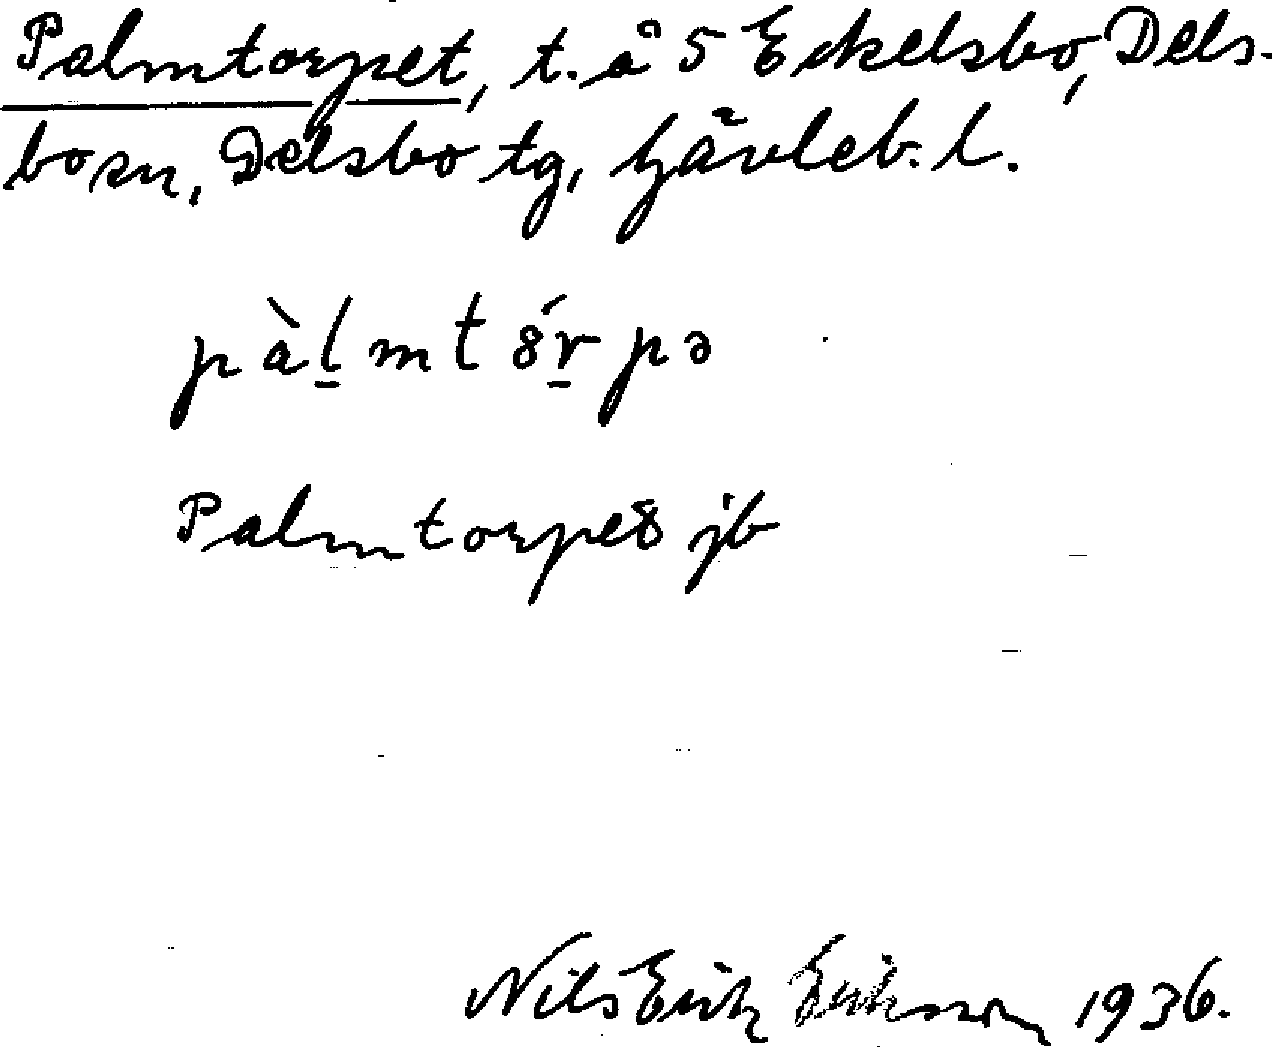 Palmtorpet, t. å 5 Eckelsbo, Dels-
bo sn, Delsbo tg, Gävleb. l.
pàl̠mtȣ́r̠pə
Palmtorpet jb
Nils Erik Eriksson 1936.